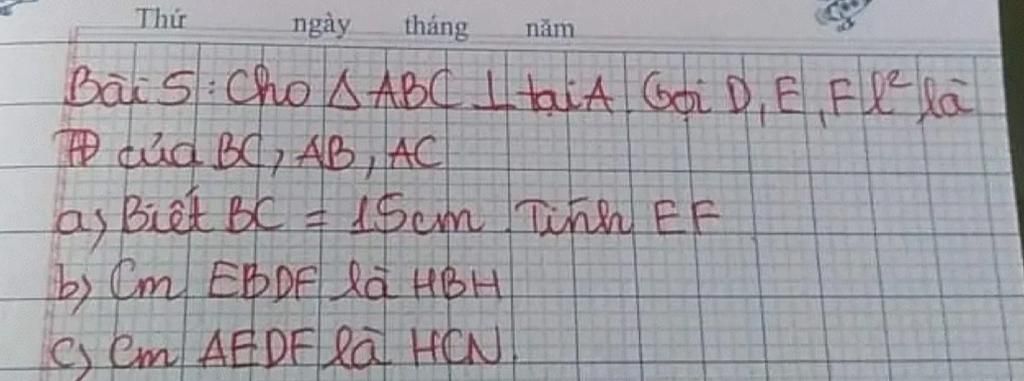 Thứ ngày tháng năm
Bài 5: Cho Δ ABC ⊥ tại A Gọi D, E, F l² là
TĐ của BC, AB, AC
a) Biết BC = 15cm Tính EF
b) Cm EBDF là HBH
c) Cm AEDF là HCN.